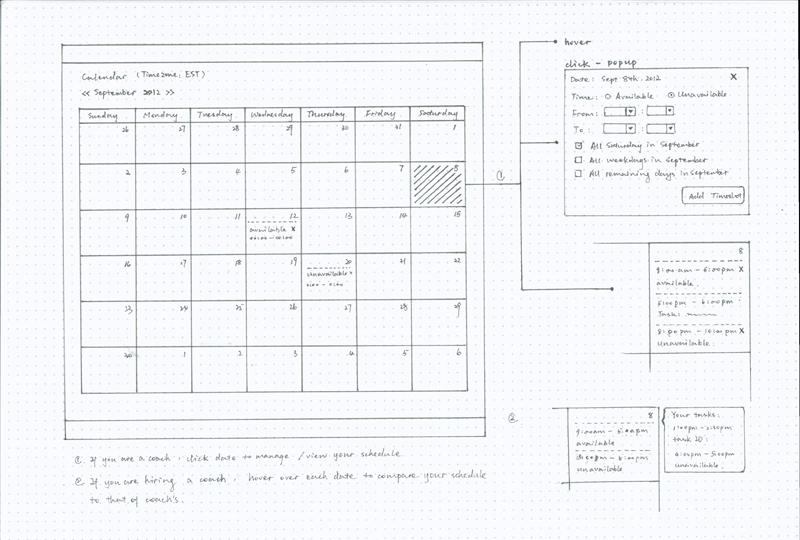 Calendar (Timezone: EST)
<< September 2012 >>
Sunday Monday Tuesday Wednesday Thursday Friday Saturday
26 27 28 29 30 31 1
2 3 4 5 6 7 8
9 10 11 12 13 14 15
available x
16 17 18 19 20 21 22
unavailable x
23 24 25 26 27 28 29
30 1 2 3 4 5 6
①
hover
click - popup
Date: Sept 8th, 2012 X
Time: Available Unavailable
From: :
To: :
All Saturday in September
All weekdays in September
All remaining days in September
Add Timeslot
8
9:00am - 5:00pm X
available.
5:00pm - 6:00pm
Task:
8:00pm - 10:00pm X
Unavailable.
②
8
9:00am - 5:00pm
available
unavailable
Your tasks:
1:00pm - 2:30pm
unavailable.
① If you are a coach, click date to manage / view your schedule
② If you are hiring a coach, hover over each date to compare your schedule
to that of coach's.